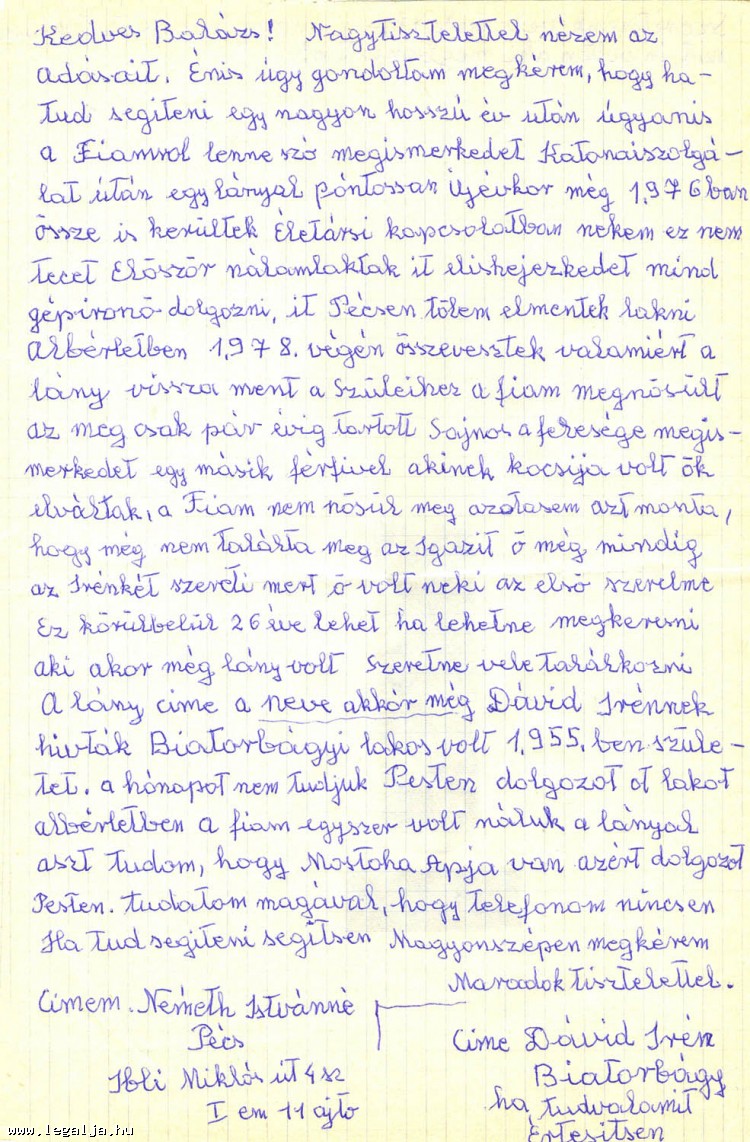 Kedves Balázs! Nagytisztelettel nézem az
adásait. Énis úgy gondoltam megkérem, hogy ha-
tud segiteni egy nagyon hosszú év után úgyanis
a Fiamrol lenne szó megismerkedet Katonaiszolgá-
lat után egy lányal póntossan Újévkor még 1.976 ban
össze is kerültek Életársi kapcsolatban nekem ez nem
tecet Először nálamlaktak it elishejezkedet mind
gépironő dolgozni, it Pécsen tőlem elmentek lakni
Albérletben 1.978. végén összevesztek valamiért a
lány vissza ment a Szüleihez a fiam megnősült
az meg csak pár évig tartott Sajnos a felesége megis-
merkedet egy másik férfivel akinek kocsija volt ők
elváltak, a Fiam nem nősül meg azotasem azt monta,
hogy még nem találta meg az Igazit ő még mindig
az Irénkét szereti mert ő volt neki az első szerelme
Ez körülbelül 26 éve lehet ha lehetne megkeresni
aki akor még lány volt szeretne vele találkozni
A lány cime a neve akkór még Dávid Irénnek
hivták Biatorbágyi lakos volt 1.955.ben szüle-
tet. a hónapot nem tudjuk Pesten dolgozot ot lakot
albérletben a fiam egyszer volt náluk a lányal
aszt tudom, hogy Mostoha Apja van azért dolgozot
Pesten. tudatom magával, hogy telefonom nincsen
Ha tud segiteni segitsen Nagyonszépen megkérem
Maradok tisztelettel.
Cimem. Németh Istvánné
Pécs
Ibli Miklós út 4 sz
I em 11 ajto
Cime Dávid Irén
Biatorbágy
ha tudvalamit
Értesitsen
www.legalja.hu